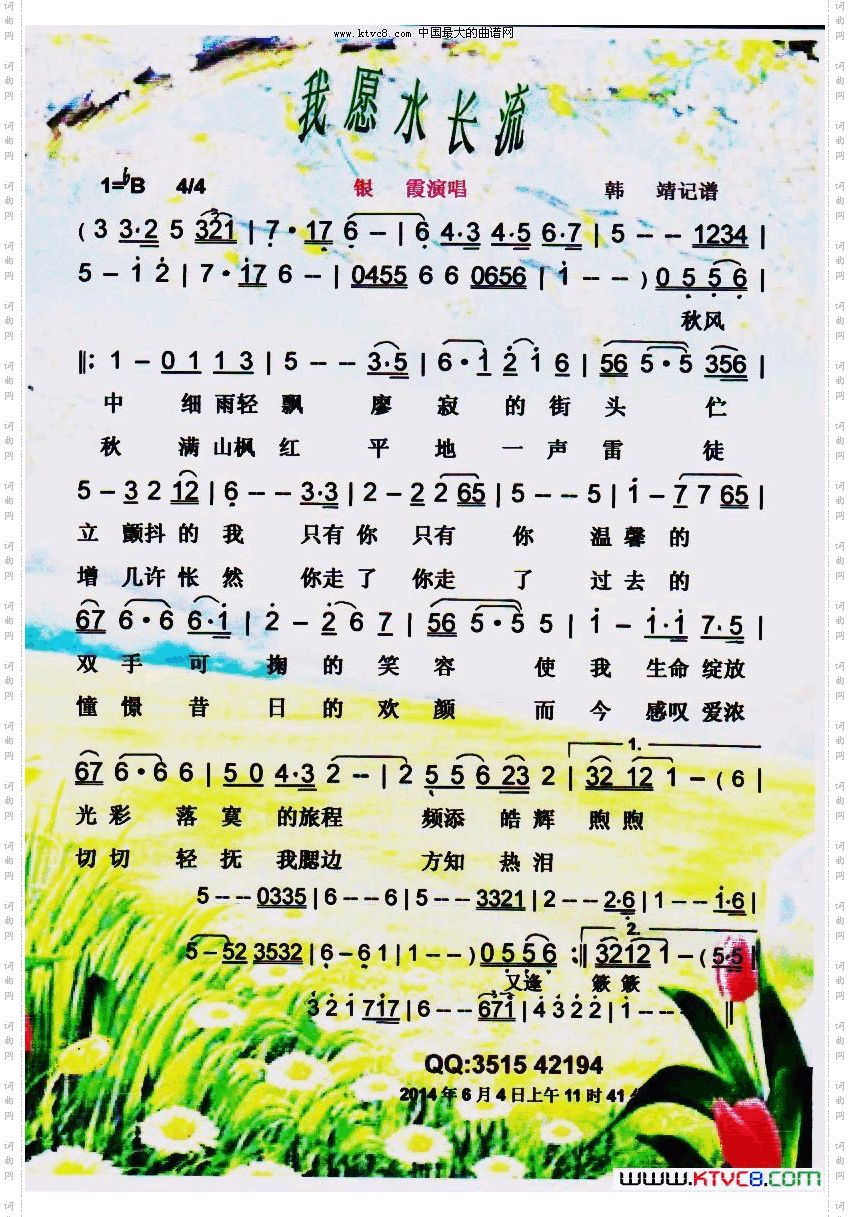 www.ktvc8.com 中国最大的曲谱网
我愿水长流
1=♭B 4/4 银 霞演唱 韩 靖记谱
(3 3·2 5 321 | 7·17 6 - | 6 4·3 4·5 6·7 | 5 - - 1234 |
5 - 1 2 | 7·17 6 - - | 0455 6 6 0656 | 1 - - ) 0 5 5 6 |
秋风
‖: 1 - 0 1 1 3 | 5 - - - 3·5 | 6·1 2 1 6 | 56 5·5 356 |
中 细雨轻飘 廖寂的街头伫
秋 满山枫红 平地一声雷徒
5 - 3 2 12 | 6 - - - 3·3 | 2 - 2 2 65 | 5 - - - 5 | 1 - 7 7 65 |
立颤抖的我 只有你 只有 你 温馨的
增几许怅然 你走了 你走 了 过去的
67 6·6 6·1 | 2 - 2 6 7 | 56 5·5 5 | 1 - 1·1 7·5 |
双手可掬的笑容 使我 生命绽放
憧憬昔日的欢颜 而今 感叹爱浓
67 6·6 6 | 5 0 4·3 2 - - | 2 5 5 6 23 2 | 1. 32 12 1 - (6 |
光彩 落寞 的旅程 频添 皓辉 煦煦
切切 轻抚 我腮边 方知 热泪
5 - - - 0335 | 6 - - 6 | 5 - - 3321 | 2 - - 2·6 | 1 - - 1·6 |
5 - 52 3532 | 6 - 6 1 | 1 - - ) 0 5 5 6 :‖ 2. 3212 1 - (5·5 ‖
又逢 簌簌
3 2 1 717 | 6 - - 671 | 4 3 2 2 | 1 - - - ) ‖
QQ:3515 42194
2014年6月4日上午11时41
www.KTVC8.com
词曲网
词曲网
词曲网
词曲网
词曲网
词曲网
词曲网
词曲网
词曲网
词曲网